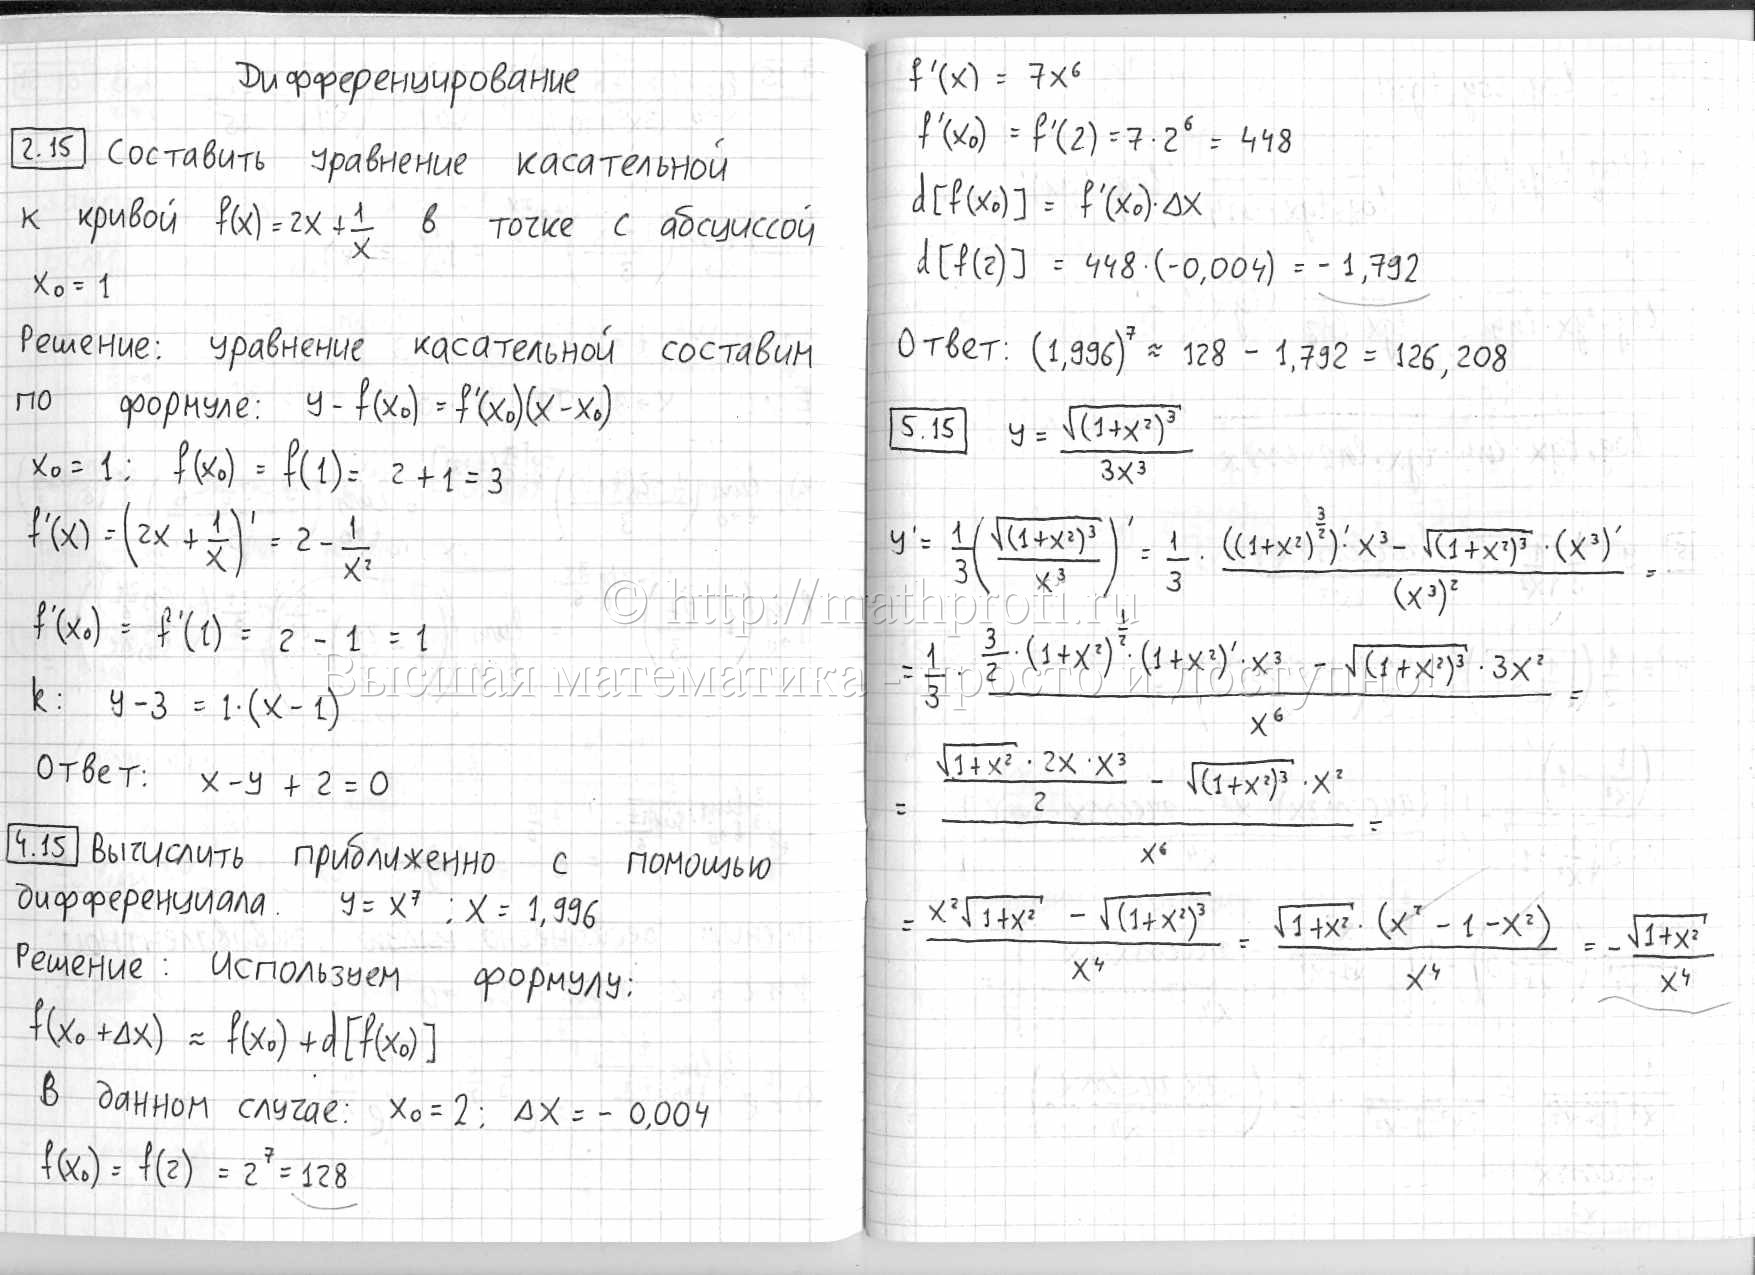 Дифференцирование
2.15 Составить уравнение касательной
к кривой f(x) = 2x + 1/x в точке с абсциссой
x₀ = 1
Решение: уравнение касательной составим
по формуле: y - f(x₀) = f'(x₀)(x - x₀)
x₀ = 1; f(x₀) = f(1) = 2 + 1 = 3
f'(x) = (2x + 1/x)' = 2 - 1/x²
f'(x₀) = f'(1) = 2 - 1 = 1
k: y - 3 = 1·(x - 1)
Ответ: x - y + 2 = 0
4.15 Вычислить приближенно с помощью
дифференциала. y = x⁷; x = 1,996
Решение: Используем формулу:
f(x₀ + Δx) ≈ f(x₀) + d[f(x₀)]
В данном случае: x₀ = 2; Δx = - 0,004
f(x₀) = f(2) = 2⁷ = 128
f'(x) = 7x⁶
f'(x₀) = f'(2) = 7·2⁶ = 448
d[f(x₀)] = f'(x₀)·Δx
d[f(2)] = 448·(-0,004) = - 1,792
Ответ: (1,996)⁷ ≈ 128 - 1,792 = 126,208
5.15 y = √(1+x²)³ / 3x³
y' = 1/3 (√(1+x²)³ / x³)' = 1/3 · (((1+x²)^(3/2))'·x³ - √(1+x²)³·(x³)') / (x³)² =
= 1/3 · (3/2·(1+x²)^(1/2)·(1+x²)'·x³ - √(1+x²)³·3x²) / x⁶ =
= ((√(1+x²)·2x·x³)/2 - √(1+x²)³·x²) / x⁶ =
= (x²√(1+x²) - √(1+x²)³) / x⁴ = √(1+x²)·(x² - 1 - x²) / x⁴ = - √(1+x²) / x⁴
© http://mathprofi.ru
Высшая математика - просто и доступно!